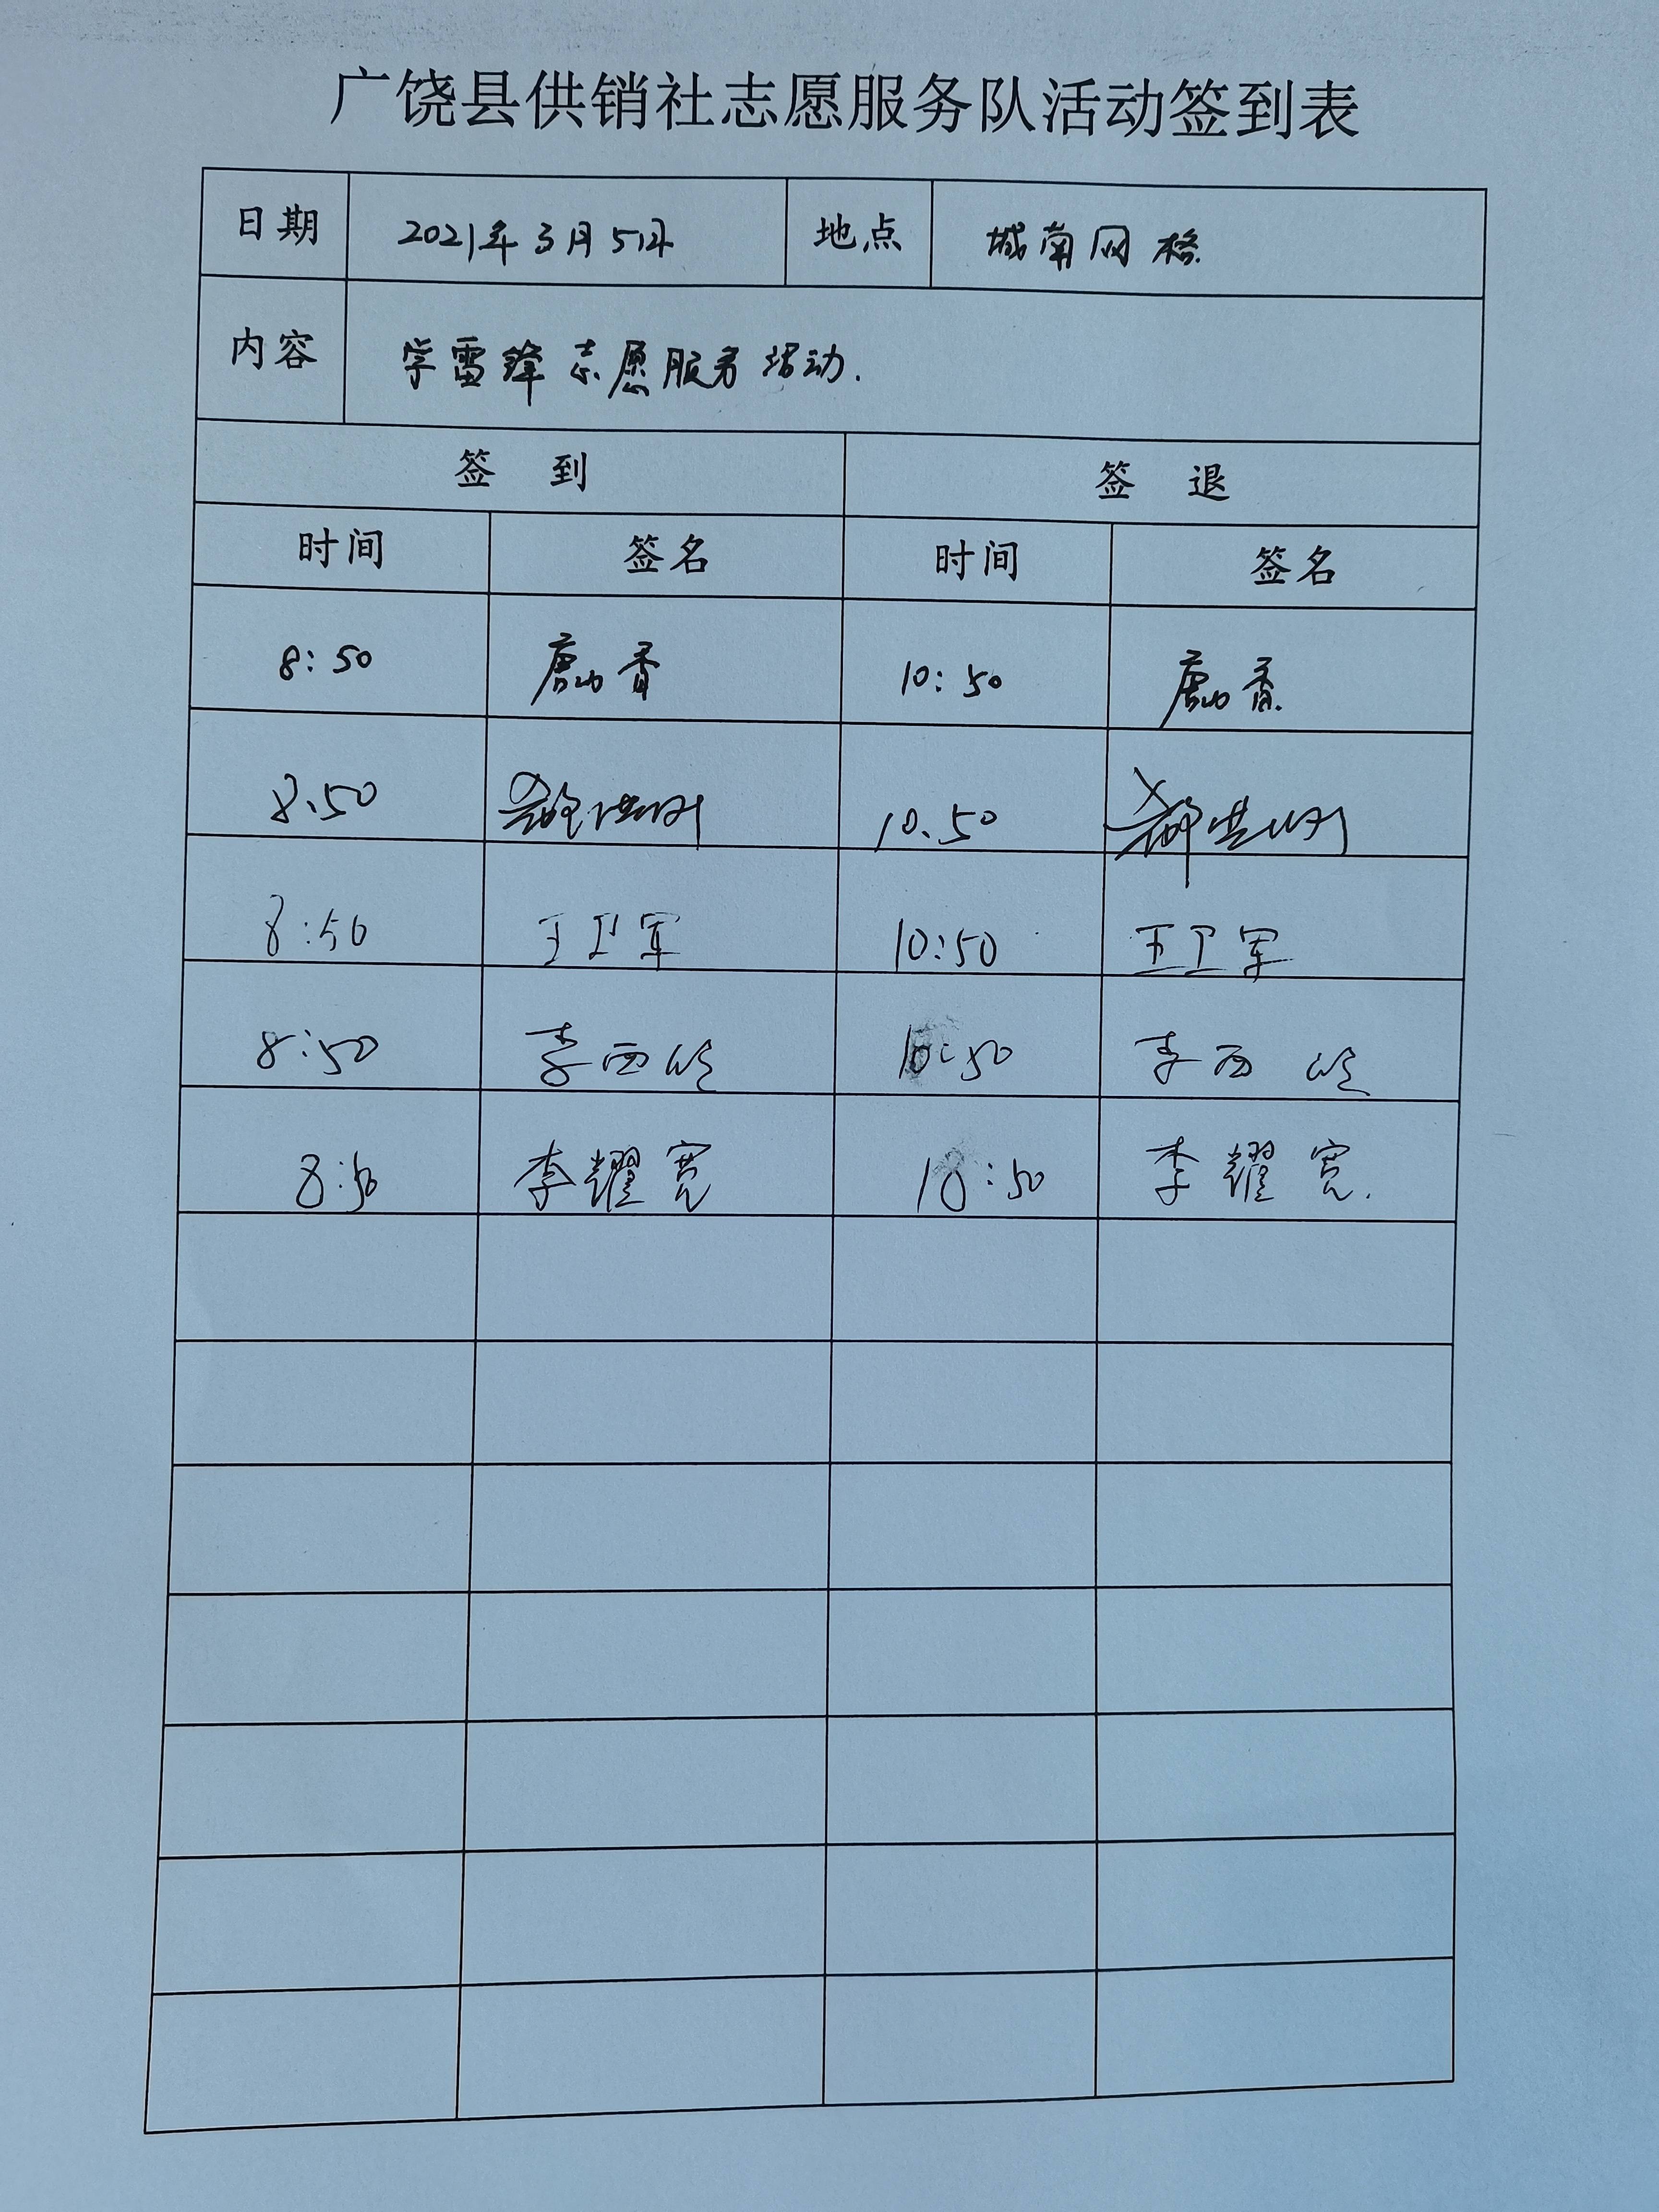 广饶县供销社志愿服务队活动签到表
日期 2021年3月5日 地点 城南网格
内容 学雷锋志愿服务活动.
签 到 签 退
时间 签名 时间 签名
8:50 10:50
8.50 10.50
8:50 王卫军 10:50 王卫军
8:50 李西 10:50 李西
8:50 李耀宽 10:50 李耀宽.